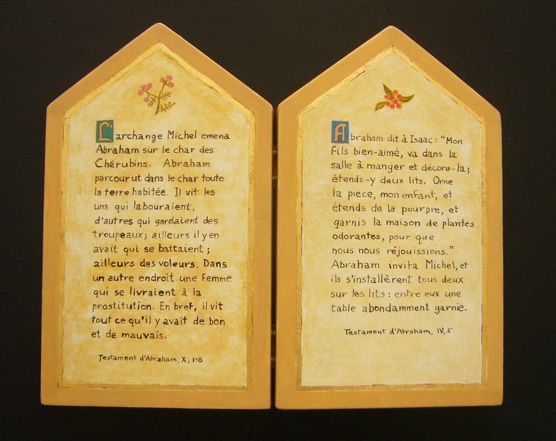 L'archange Michel emena
Abraham sur le char des
Chérubins. Abraham
parcourut dans le char toute
la terre habitée. Il vit les
uns qui labouraient,
d'autres qui gardaient des
troupeaux; ailleurs il y en
avait qui se battaient;
ailleurs des voleurs. Dans
un autre endroit une femme
qui se livraient à la
prostitution. En bref, il vit
tout ce qu'il y avait de bon
et de mauvais.
Testament d'Abraham, X, 1-8
Abraham dit à Isaac: "Mon
Fils bien-aimé, va dans la
salle à manger et décore-la;
étends-y deux lits. Orne
la piece, mon enfant, et
étends de la pourpre, et
garnis la maison de plantes
odorantes, pour que
nous nous réjouissions."
Abraham invita Michel, et
ils s'installèrent tous deux
sur les lits: entre eux une
table abondamment garnie.
Testament d'Abraham, IV, 5